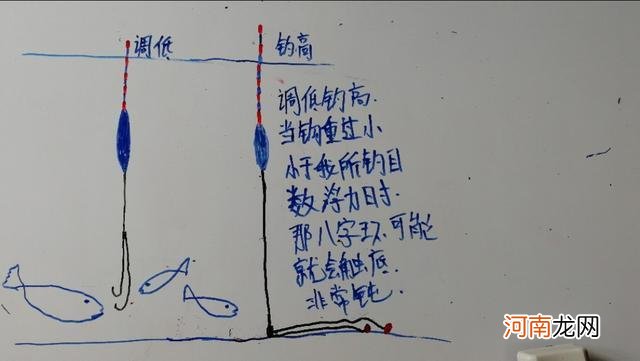 调低
钓高
调低钓高.
当钩重过小
小于我所钓目
数浮力时.
那八字环.可能
就会触底.
非常钝.
河南龙网